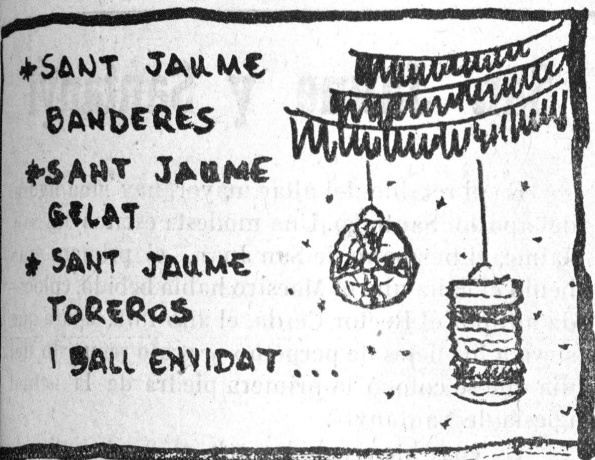 *SANT JAUME
BANDERES
*SANT JAUME
GELAT
* SANT JAUME
TOREROS
I BALL ENVIDAT...